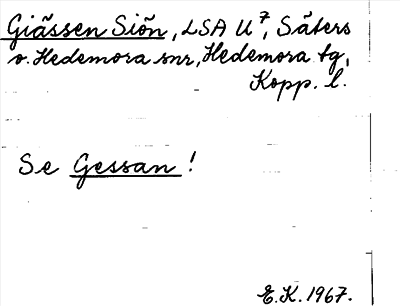 Giãssen Siõn, LSA U⁷, Säters
o. Hedemora snr, Hedemora tg,
Kopp. l.
Se Gessan!
E.K. 1967.